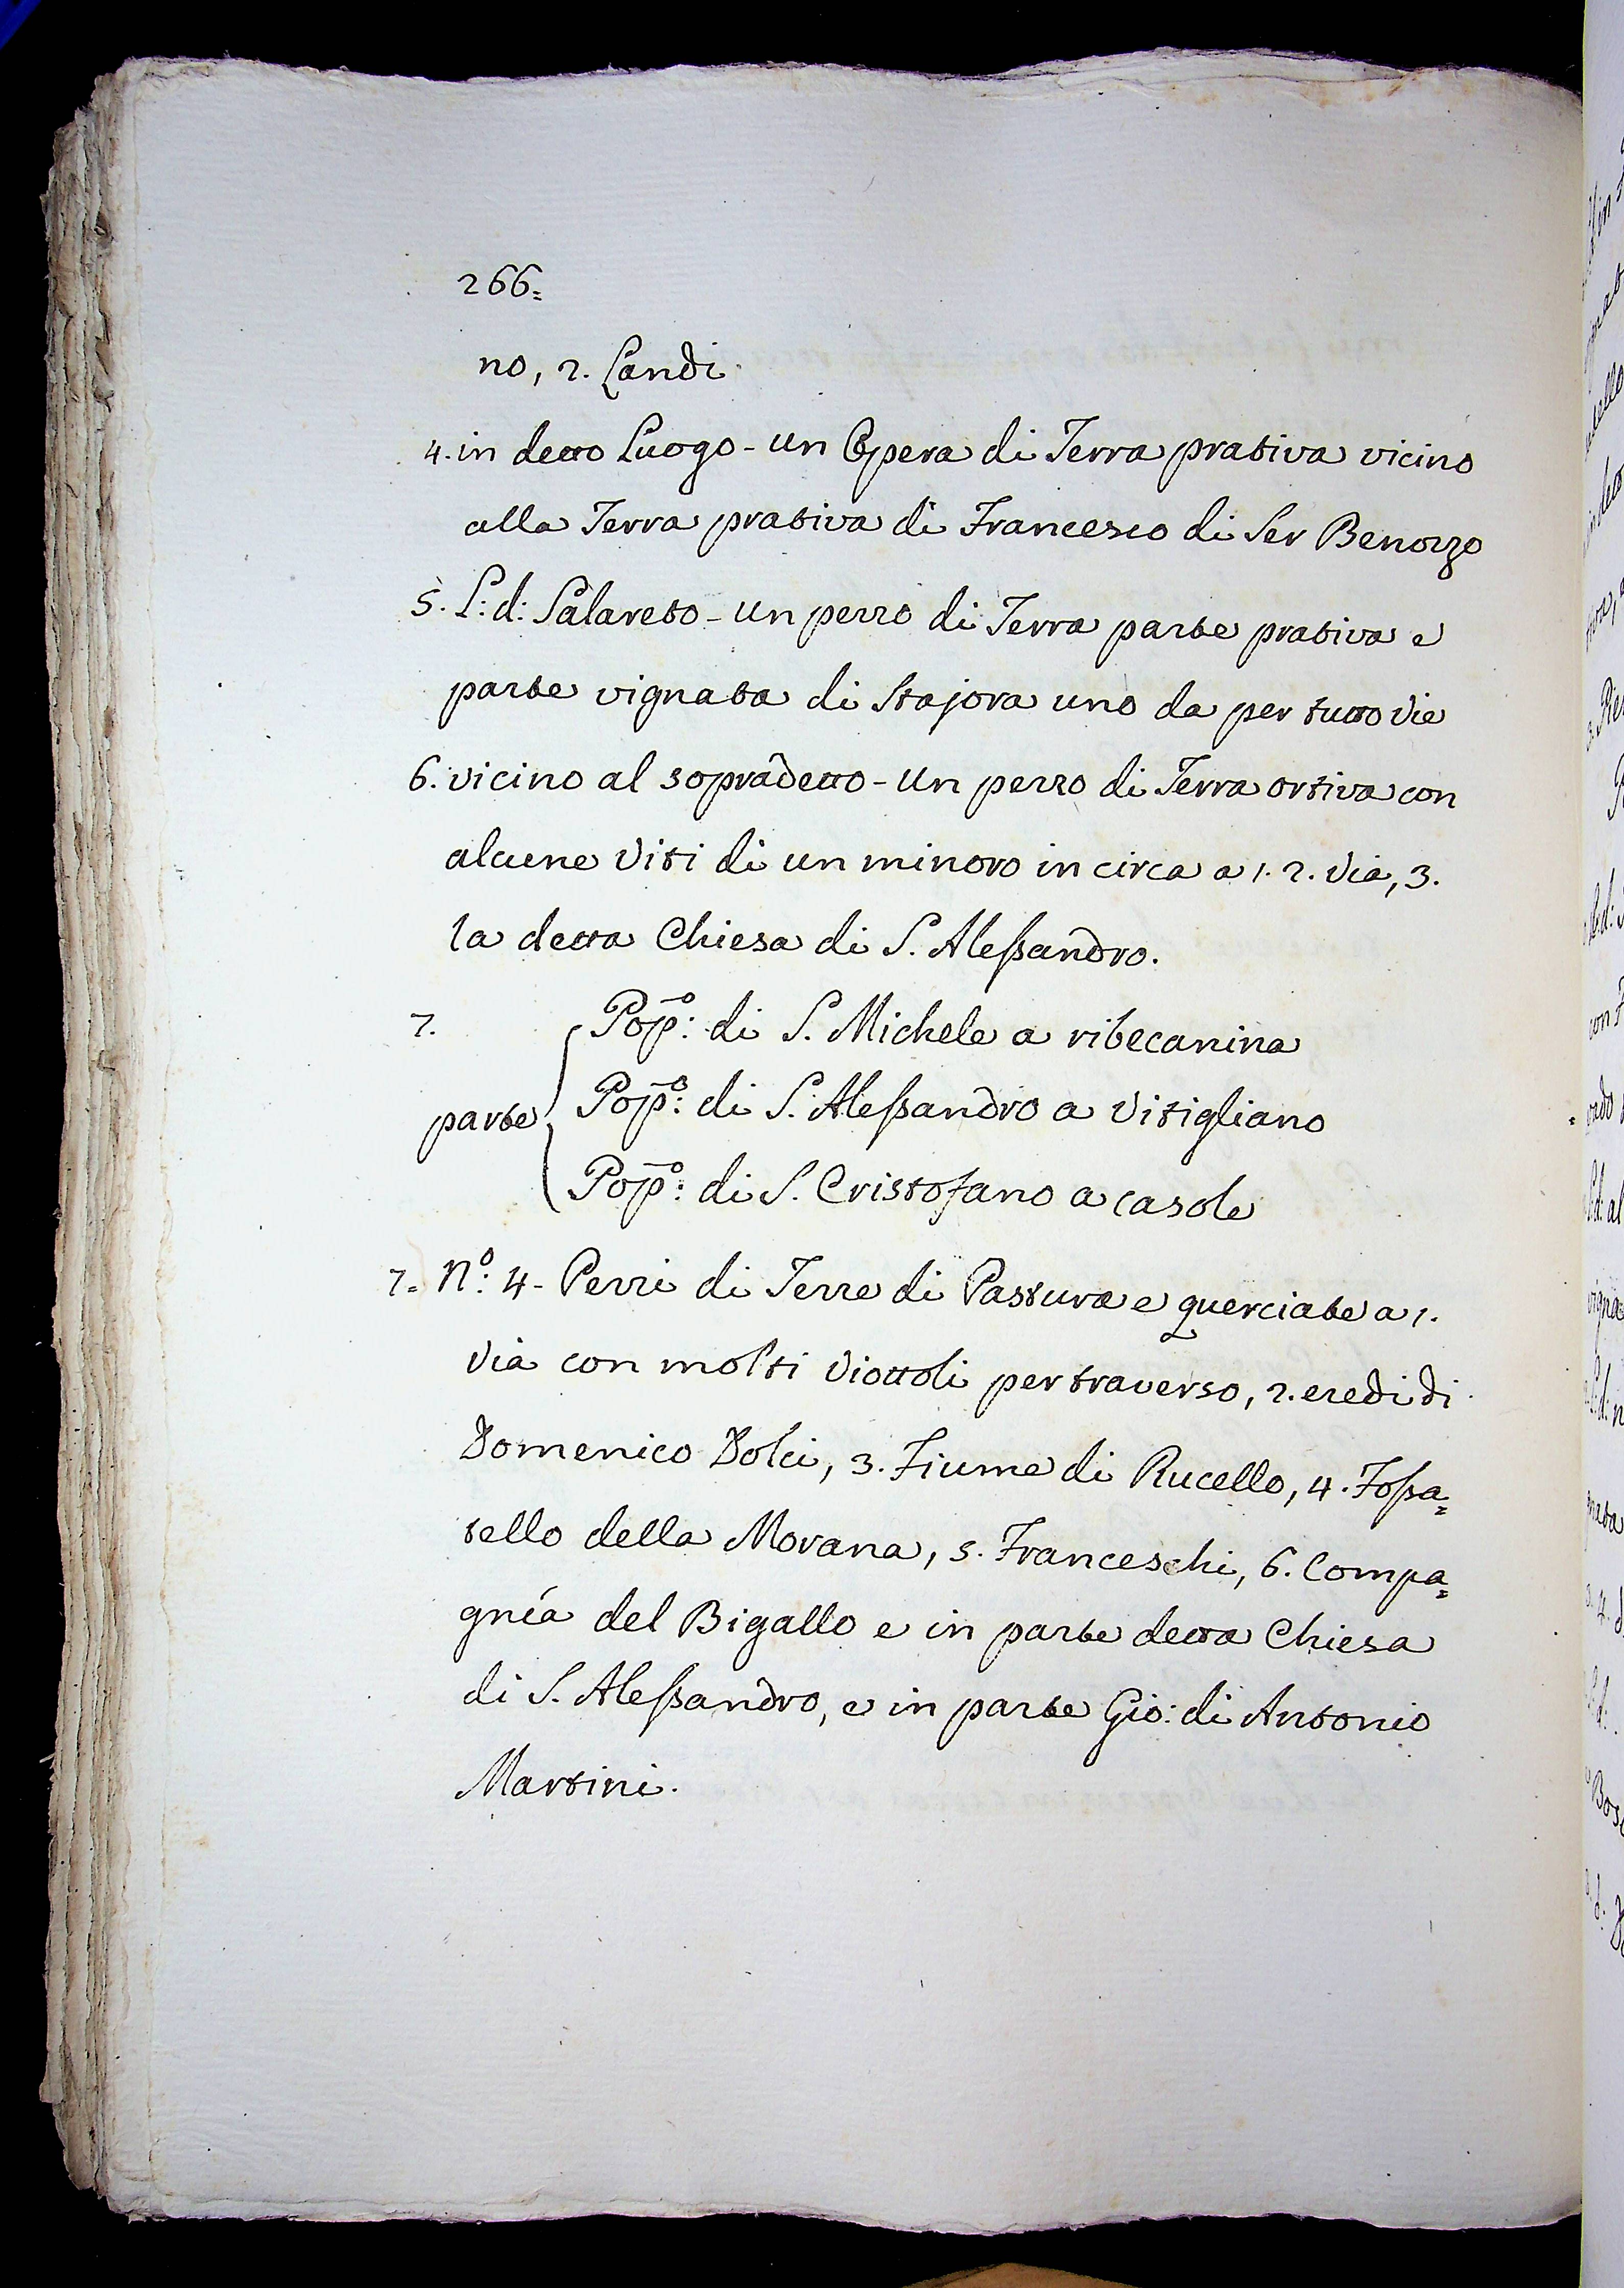 266=
no, 2. Landi
4. in detto Luogo - un Opera di Terra prativa vicino
alla Terra prativa di Francesco di Ser Benozzo
5. L: d: Salareto - un pezzo di Terra parte prativa e
parte vignata di Stajora uno da per tutto Vie
6. vicino al sopradetto - un pezzo di Terra ortiva con
alcune Viti di un minoro in circa a 1. 2. Via, 3.
la detta Chiesa di S. Alessandro.
7. Pop̄:º di S. Michele a ribecanina
parte Pop̄:º di S. Alessandro a Vitigliano
Pop̄:º di S. Cristofano a Casole
7= Nº: 4 - Pezzi di Terre di Pastura e querciate a 1.
Via con molti Viottoli per traverso, 2. eredi di
Domenico Dolci, 3. Fiume di Rucello, 4. Fossa=
tello della Morana, 5. Franceschi, 6. Compa=
gnía del Bigallo e in parte detta Chiesa
di S. Alessandro, e in parte Gio: di Antonio
Martini.